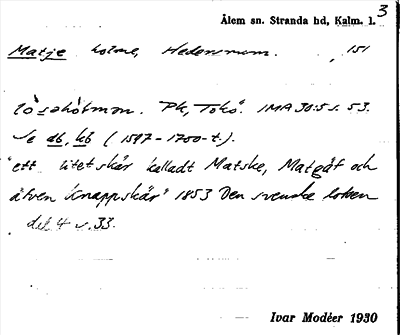 Ålem sn. Stranda hd, Kalm. l. 3
Matje holme, Hedenemum. 151
lösahòtmon. Pk, Tokö. IMA 30:5 s. 53.
Se db, kb (1597-1750-t.).
"ett litet skär kalladt Matske, Matgåf och
äfven Knappskär" 1853 Den svenske lotsen
del 4 s. 33.
Ivar Modéer 1930